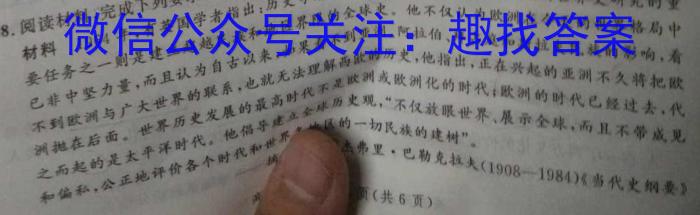 8. 阅读材料，完成下列要求
微信公众号关注：趣找答案
材料 学者指出：历史
要任务之一则是建 全球史。他不仅认为欧洲
已非中坚力量，而且认为自古以来 阿拉伯 影响，看
不到欧洲与广大世界的联系，也就无法理解西欧的历史，他指出，正在兴起的亚洲不久将把欧
洲抛在后面。世界历史发展的最高时代不是欧洲或欧洲化的时代；欧洲的时代已经过去，代
之而起的是太平洋时代。他倡导建立全球历史观，“不仅放眼世界、展示全球，而且不带成见
和偏私，公正地评价各个时代和世界 地区的一切民族的建树”。
杰弗里·巴勒克拉夫(1908—1984)《当代史纲要》
页(共6页)